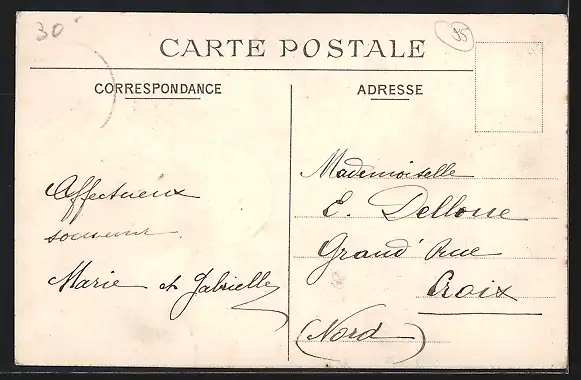 30
95
CARTE POSTALE
CORRESPONDANCE
ADRESSE
Affectueux
souvenir
Marie et Gabrielle
Mademoiselle
E. Dellosse
Grand' Rue
Croix
(Nord)